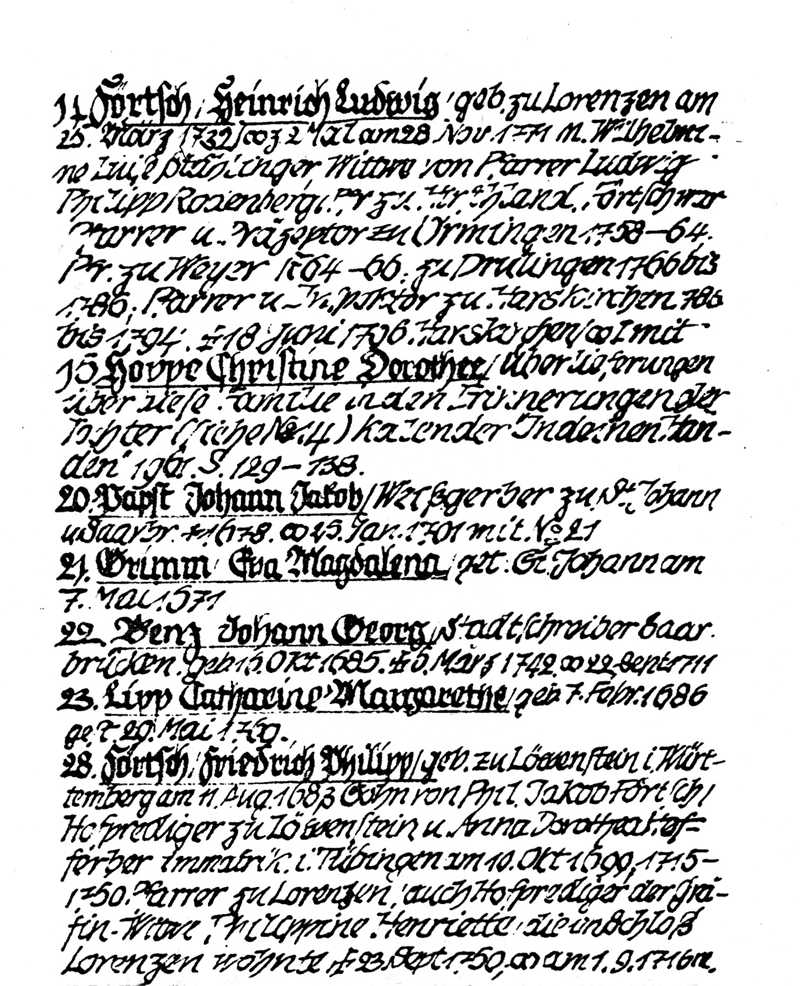 14 Förtsch, Heinrich Ludwig, geb. zu Lorenzen am
25. März 1732, ∞ z 2 Mal am 28 Nov. 1771 m. Wilhelmi-
ne Luise Wittwe von Pfarrer Ludwig
Philipp Rosenberg, Pfr zu Förtsch war
Pfarrer u. Präzeptor zu Örmingen 1758–64.
Pfr. zu Weyer 1764–66. zu Drulingen 1766 bis
1786, Pfarrer u Inspektor zu Harskirchen 786
bis 1794. ‡ 18 Juni 1796. Harskirchen, ∞ I mit
15 Hoppe Christine Dorothee, Überlieferungen
über diese Familie in den Erinnerungen der
Tochter (siehe No. 14) Kalender "In deinen Hän-
den" 1961 S. 129–138.
20. Papst Johann Jakob, Weißgerber zu St. Johann
u Saarbr. * 1678. ∞ 25. Jan. 1701 mit No 21
21. Grimm, Eva Magdalena, get. St. Johann am
7. Mai 1671
22. Benz Johann Georg, Stadtschreiber Saar-
brücken. geb 15. Okt 1685. ‡ 6. März 1742 ∞ 22. Sept 1711
23. Lipp Catharine Margarethe, geb 7. Febr. 1686
gest 29. Mai
28. Förtsch, Friedrich Philipp, geb. zu Löwenstein i. Würt-
temberg am 11. Aug. 1683 Sohn von Phil. Jakob Förtsch,
Hofprediger zu Löwenstein u. Anna Dorothea Hof-
ferber immatrik. i. Tübingen am 10. Okt 1699, 1715–
1750. Pfarrer zu Lorenzen, auch Hofprediger der Grä-
fin-Witwe Philippine Henriette, die in Schloß
Lorenzen wohnte, ‡ 23. Sept 1750, ∞ am 1. 9. 1716 m.